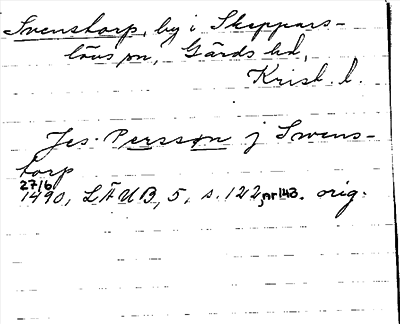 Svenstorp, by i Skeppars-
lövs sn, Gärds hd,
Krist. l.
Jes Persson j Swens-
torp
27/6
1490, LÄUB, 5, s. 122, nr 143. orig.